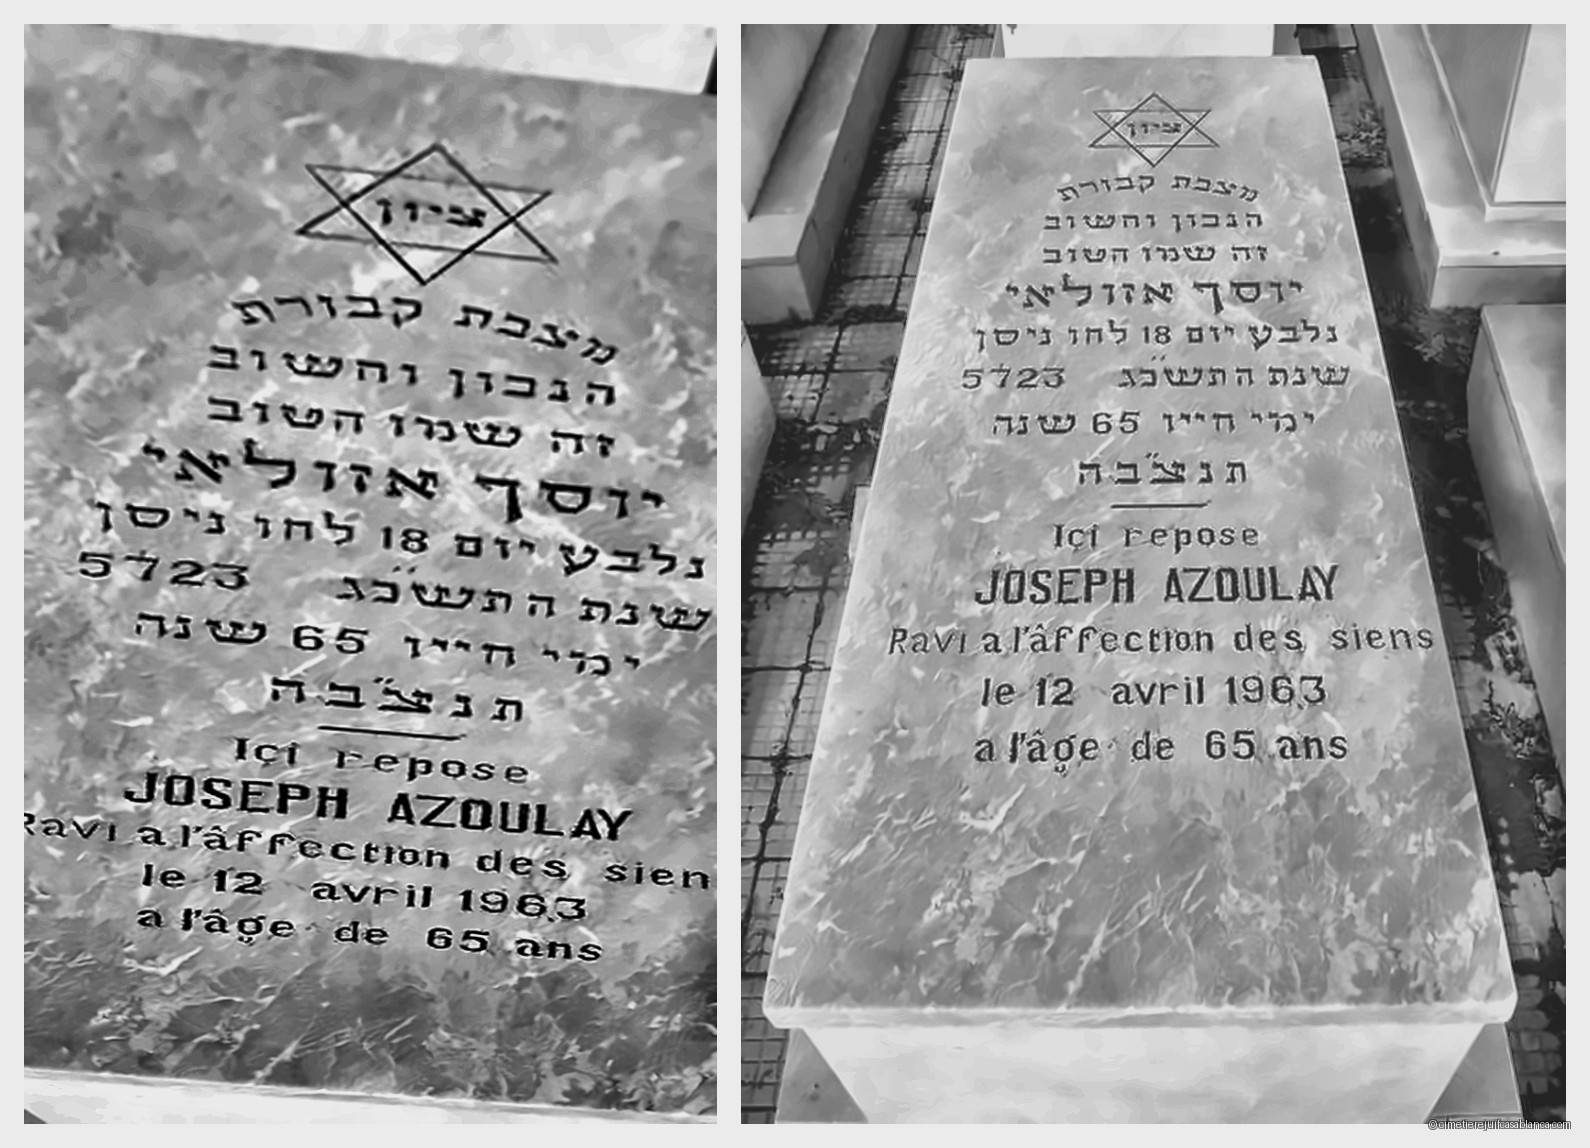 ציון
מצבת קבורת
הנבון והשוב
זה שמו הטוב
יוסף אזולאי
נלבע יום 18 לחו ניסן
שנת התשכ״ג 5723
ימי חייו 65 שנה
תנצ״בה
Içi repose
JOSEPH AZOULAY
Ravi a l'âffection des siens
le 12 avril 1963
a l'âge de 65 ans
ציון
מצבת קבורת
הנבון והשוב
זה שמו הטוב
יוסף אזולאי
נלבע יום 18 לחו ניסן
שנת התשכ״ג 5723
ימי חייו 65 שנה
תנצ״בה
Içi repose
JOSEPH AZOULAY
Ravi a l'âffection des siens
le 12 avril 1963
a l'âge de 65 ans
©cimetierejuifcasablanca.com